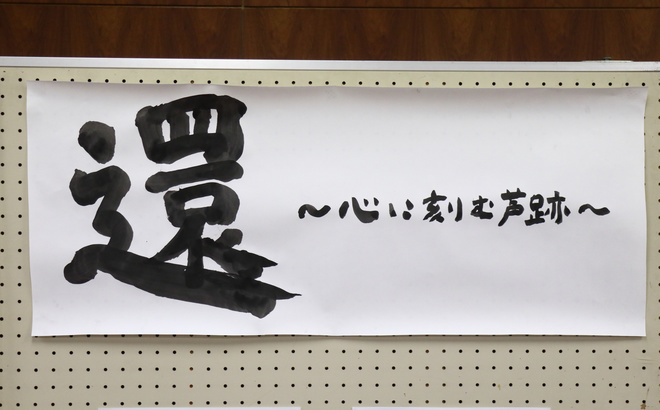 還
～心に刻む芦跡～